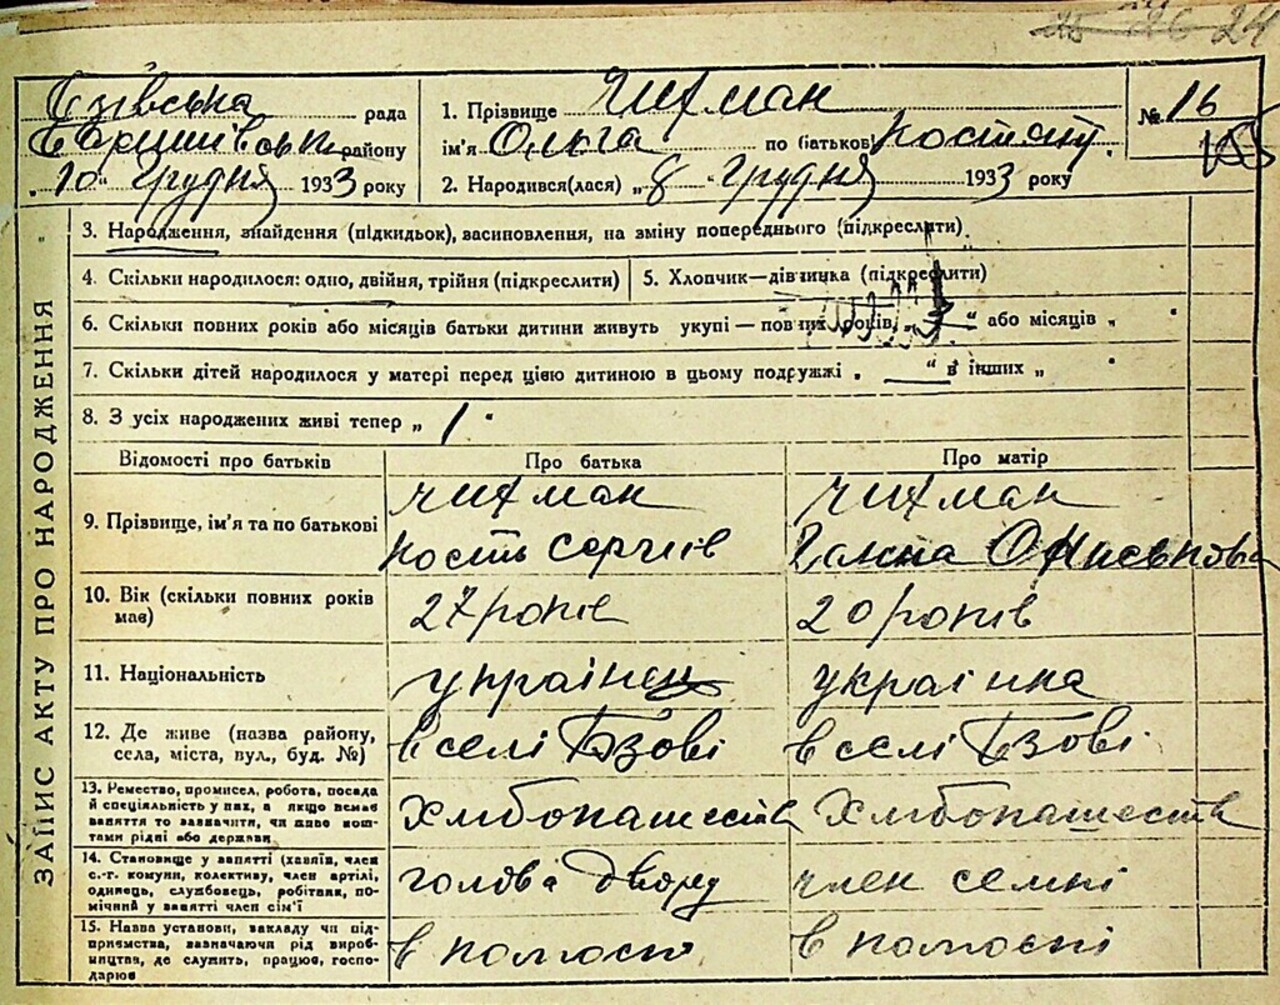 26 24
Бзівська рада
Баришівськ району
„10“ грудня 1933 року
1. Прізвище Чихман
ім'я Ольга по батькові Костянт.
2. Народився(лася) „8“ грудня 1933 року
№ 16
ЗАПИС АКТУ ПРО НАРОДЖЕННЯ
3. Народження, знайдення (підкидьок), васиновлення, на зміну попереднього (підкреслити).
4. Скільки народилося: одно, двійня, трійня (підкреслити)
5. Хлопчик—дівчинка (підкреслити)
6. Скільки повних років або місяців батьки дитини живуть укупі — повних років „3“ або місяців „ “
7. Скільки дітей народилося у матері перед цією дитиною в цьому подружжі „—“ в інших „ “
8. З усіх народжених живі тепер „1“
Відомості про батьків Про батька Про матір
9. Прізвище, ім'я та по батькові
Чихман
Кость Сергіїв
Чихман
Ганна Ониськова
10. Вік (скільки повних років
має)
27 років
20 років
11. Національність
українець
українка
12. Де живе (назва району,
села, міста, вул., буд. №)
в селі Бзові
в селі Бзові
13. Ремество, промисел, робота, посада
й спеціяльність у них, а якщо немає
заняття то зазначити, чи живе кош-
тами рідні або держави
Хлібопашеств
Хлібопашества
14. Становище у занятті (хазяїн, член
с.-г. комуни, колективу, член артілі,
одинець, службовець, робітник, по-
мічний у занятті член сім'ї
голова двору
член семні
15. Назва установи, закладу чи під-
приємства, зазначаючи рід вироб-
ництва, де служить, працює, госпо-
дарює
в колгосп
в колгоспі